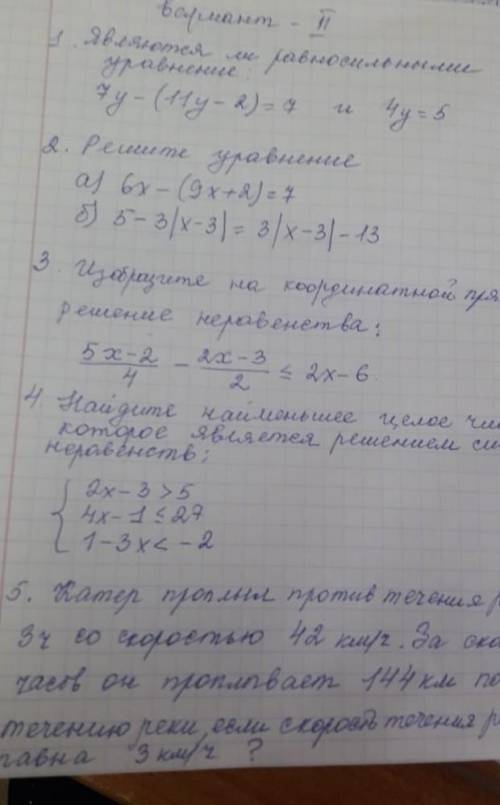 Вариант - II
1. Являются ли равносильными
уравнение:
7y-(11y-2)=7 и 4y=5
2. Решите уравнение
а) 6x-(9x+2)=7
б) 5-3|x-3|=3|x-3|-13
3. Изобразите на координатной пря
решение неравенства:
\frac{5x-2}{4} - \frac{2x-3}{2} ≤ 2x-6
4. Найдите наименьшее целое чис
которое является решением си
неравенств:
2x-3>5
4x-1≤27
1-3x<-2
5. Катер проплыл против течения р
3ч со скоростью 42 км/ч. За ско
часов он проплывает 144 км по
течению реки, если скорость течения р
равна 3 км/ч ?